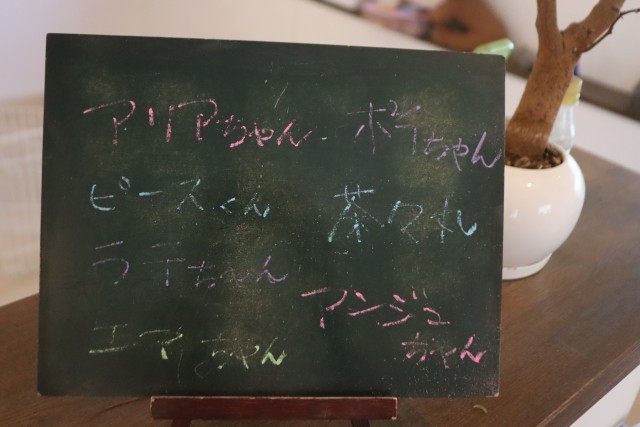 アリアちゃん
ピースくん
ラテちゃん
エマちゃん
ポテちゃん
茶々丸
アンジュ
ちゃん